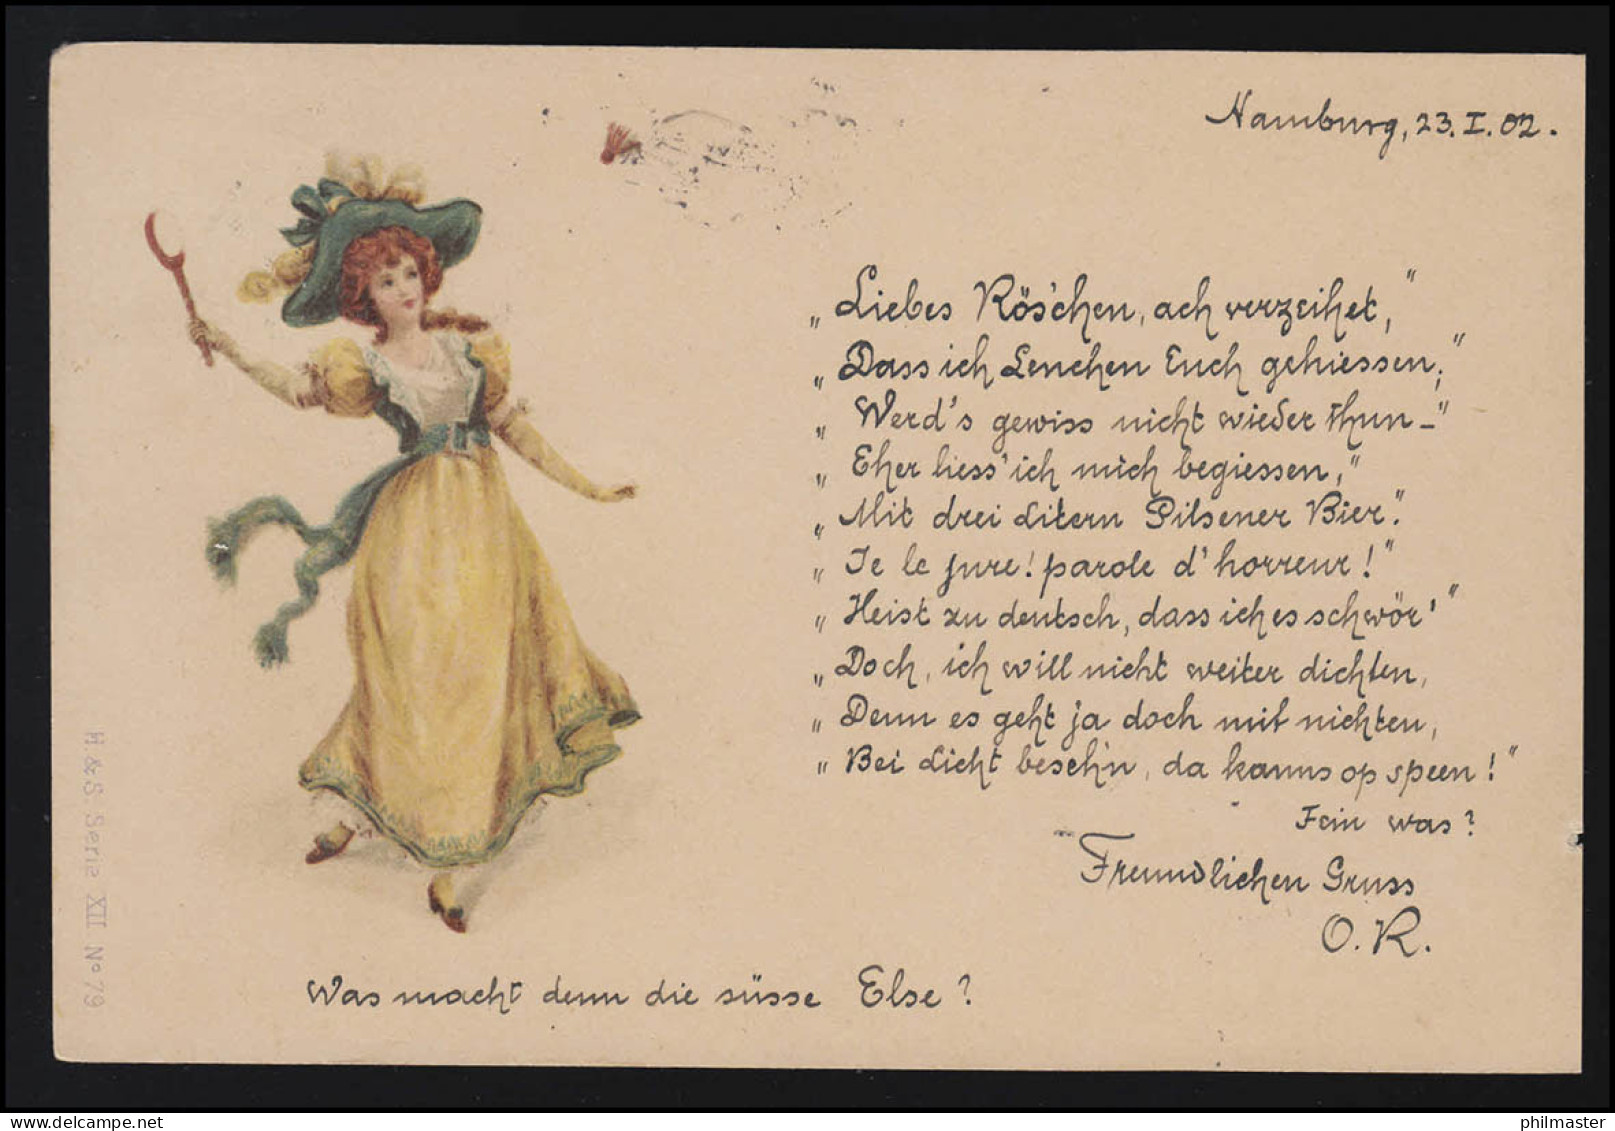 Hamburg, 23. I. 02.
„Liebes Rös'chen, ach verzeihet,"
„Dass ich Lenchen Euch gehiessen,"
„Werd's gewiss nicht wieder thun –"
„Eher liess' ich mich begiessen,"
„Mit drei Litern Pilsener Bier."
„Je le jure! parole d'horreur!"
„Heist zu deutsch, dass ich es schwör'"
„Doch, ich will nicht weiter dichten,
„Denn es geht ja doch mit nichten,
„Bei Licht beseh'n, da kanns op speen!"
Fein was?
Freundlichen Gruss
O. R.
Was macht denn die süsse Else?
H. & S. Serie XII No 79
philmaster